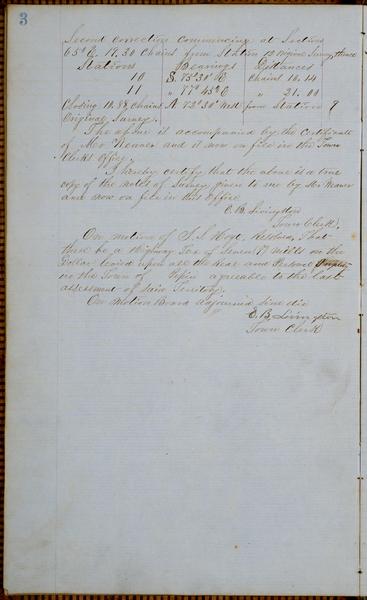 3
Second Correction Commencing at Station
65° E. 19.30 Chains from Station 12 Original Survey, thence
Stations Bearings Distances
10 S. 75°30' E Chains 10.14
11 " 77°45' E " 21.00
Closing 10.88 Chains N 72°30' West from Station 9
Original Survey.
The above is accompanied by the Certificate
of Mr Weaver and is now on file in the Town
Clerk's Office.
I hereby certify that the above is a true
copy of the notes of Survey given to me by Mr Weaver
and now on file in this Office
E. B. Livingston
Town Clerk.
On motion of S. S. Hoyt, Resolved, That
there be a Highway Tax of Seven (7) Mills on the
Dollar levied upon all the Real and Personal Property
in the Town of Pepin agreeable to the last
assessment of said Territory.
On Motion Board adjourned sine die
E. B. Livingston
Town Clerk